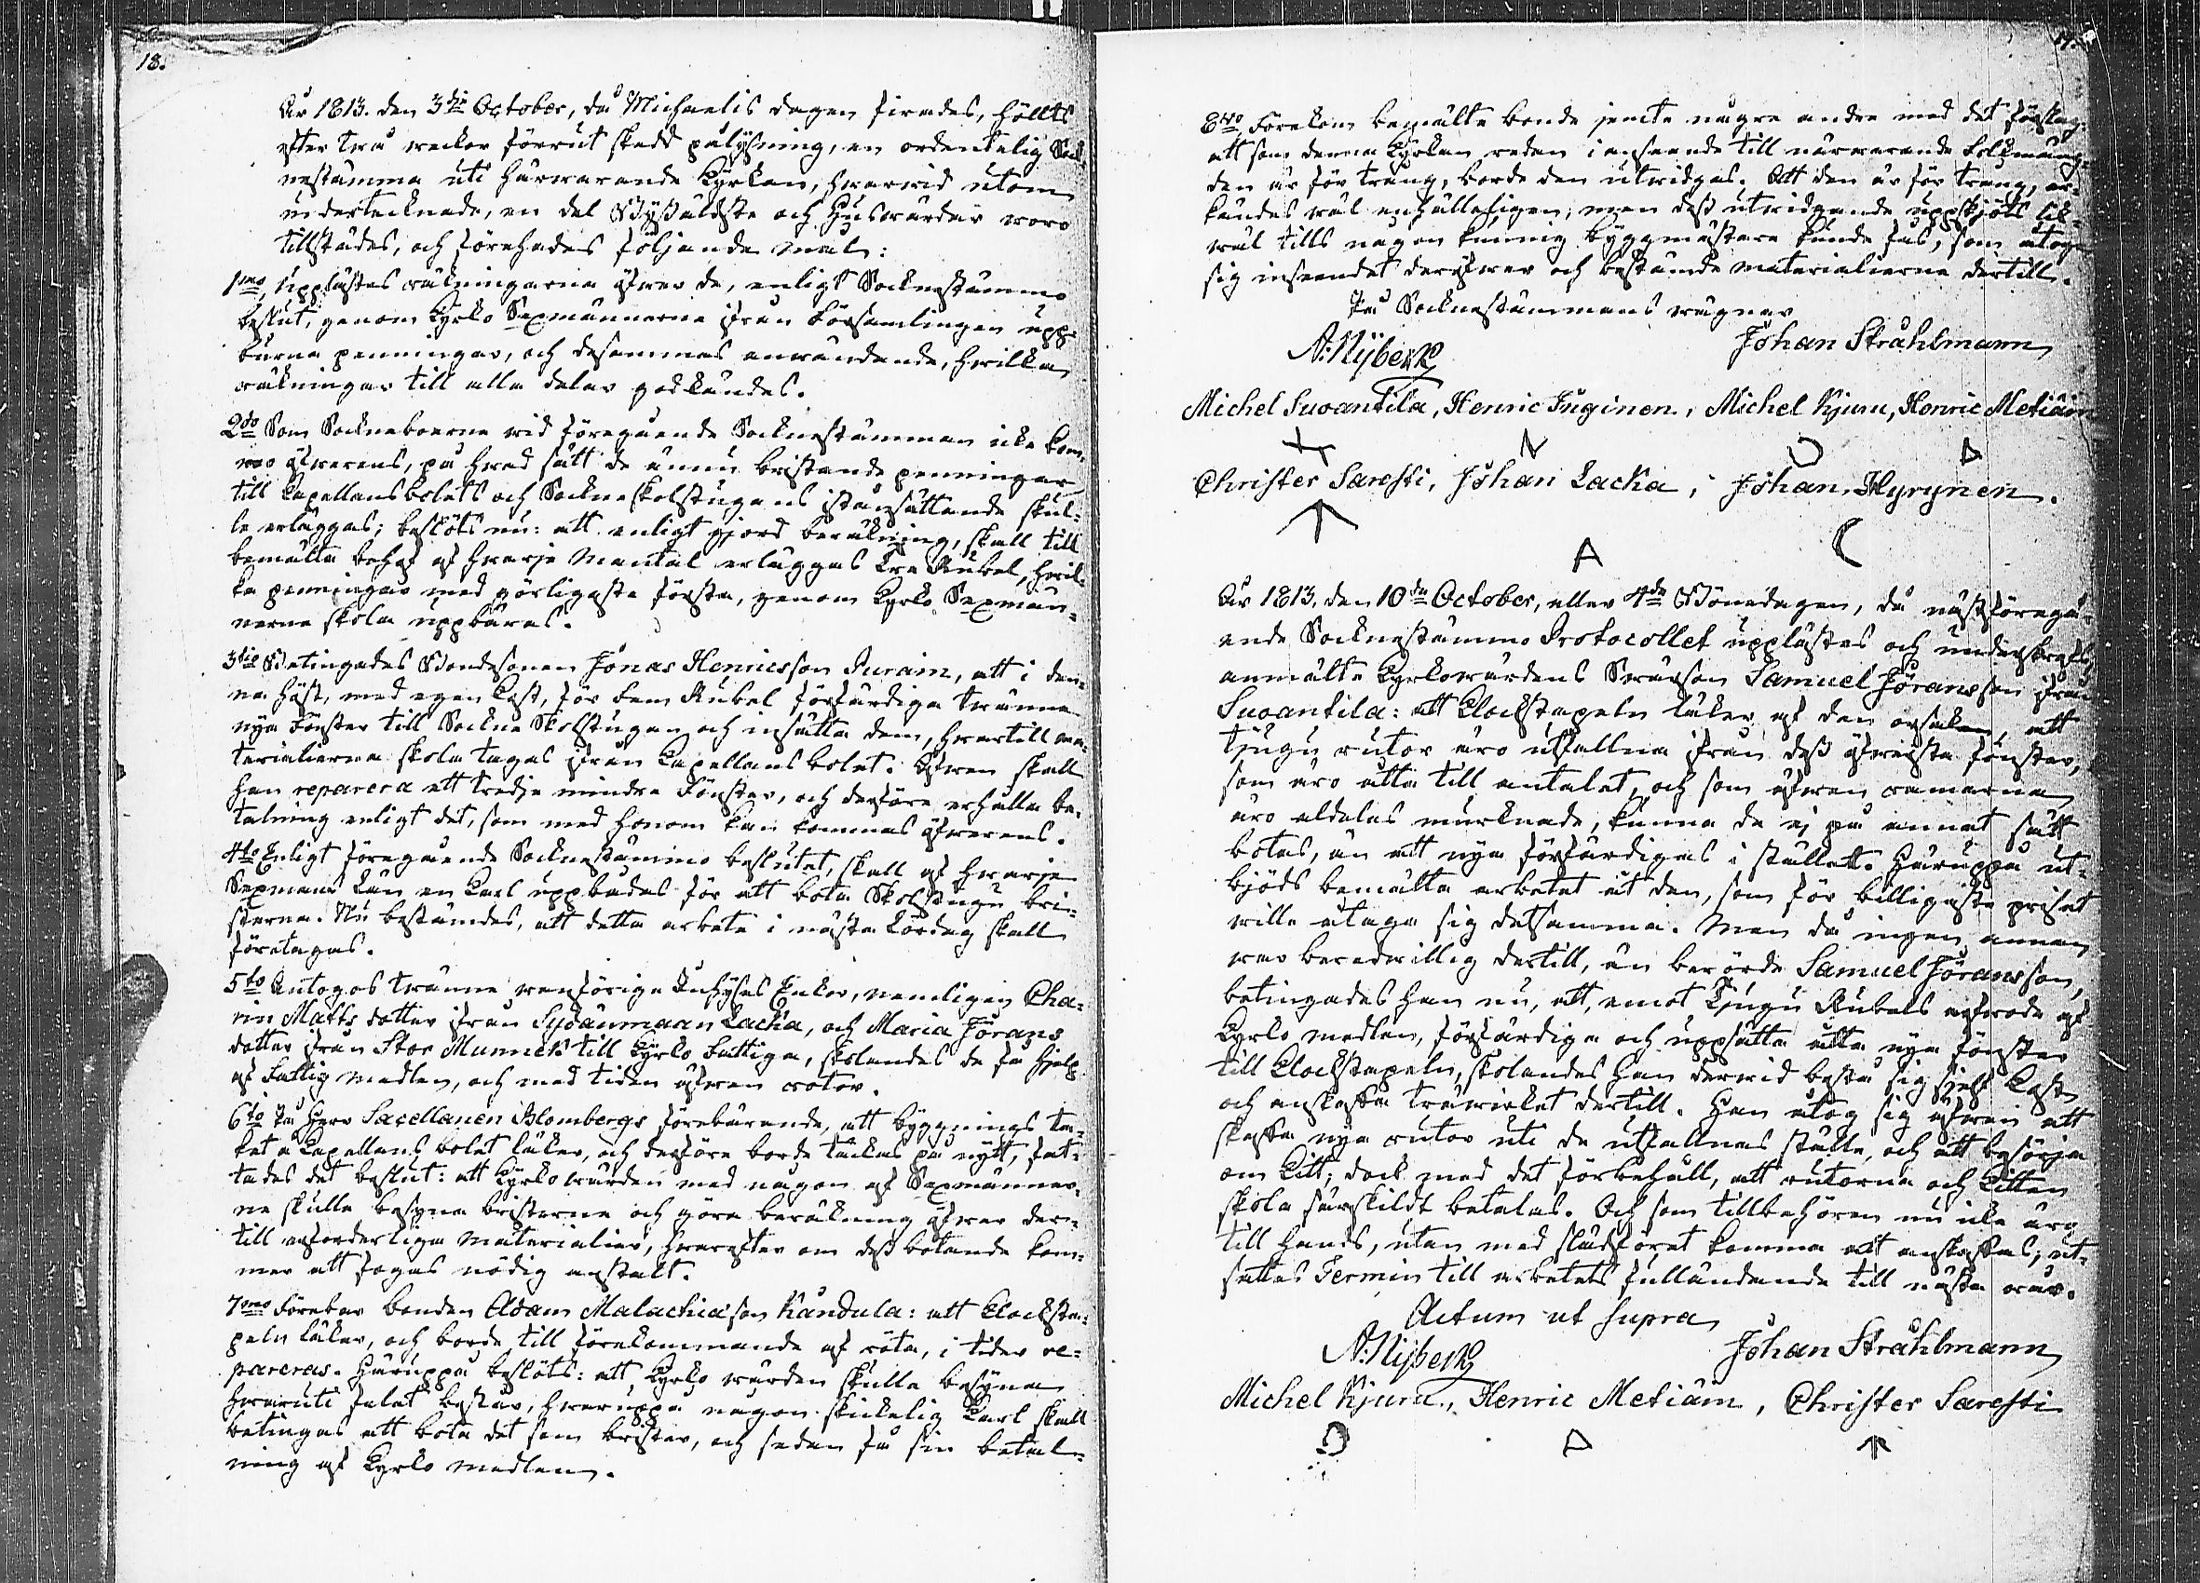 18.
År 1813. den 3die October, då Michaelis dagen firades, hölts
efter twå weckor förrut skedd pålysning, en ordentelig Sock-
nestämma uti härwarande Kyrkan, hwarwid utom
undertecknade, en del Byäldste och Huswärdar woro
tillstädes, och förehades följande mål:
1mo, Upplästes räkningarna öfwer de, enligt Sockneståmmo
beslut, genom Kyrko Sexmännerne ifrån Församlingen upp-
burna penningar, och desammas anwändande, hwilka
räkningar till alla delar godkändes.
2do Som Sockneboerne wid föregående Sockneståmman icke kom-
mo öfwerens, på hwad sätt de ännu bristande penningar
till Capellansbolets och Sockneskolstugans iståndsättande skul-
le erläggas; beslöts nu: att enligt gjord beräkning, skall till
bemälta behof af hwarje Mantal erläggas tre Rubel, hwil-
ka penningar med görligaste första, genom Kyrko Sexmän-
nerna skola uppbäras.
3tio Betingades Bondesonen Jonas Henricsson Purain, att i den-
na höst, med egen kost, för fem Rubel förfärdiga twänne
nya Fönster till Sockne Skolstugan och insätta dem, hwartill ma-
terialierna skola tagas ifrån Capellansbolet. Äfwen skall
han reparera ett tredje mindre Fönster, och derföre erhålla be-
talning enligt det, som med honom kan kommas öfwerens.
4to Enligt föregående Sockneståmmo beslutet, skall af hwarje
Sexmans län en Karl uppbådas för att bota Skolstugu bri-
sterna. Nu bestämdes, att detta arbete i nästa Lördag skall
företagas.
5to Antogos twänne wanföriga Inhyses Enkor, nemligen Cha-
rin Matts dotter ifrån Sydänmaan Lacka, och Maria Jörans
dotter ifrån Stor Munnek till Kyrko fattiga, skolandes de få hjelp
af Fattig medlen, och med tiden äfwen rotor.
6to På Herr Sacellanen Blombergs förebärande, att byggnings ta-
ket å Capellans bolet läker, och derföre borde täckas på nytt, fat-
tades det beslut: att Kyrkowärden med någon af Sexmänner-
ne skulle besyna bristerne och göra beräkning öfwer der-
till erforderliga Materialier, hwarefter om dess botande kom-
mer att fogas nödig anstalt.
7mo Förebar bonden Adam Malachiasson Kandula: att Klocksta-
peln läker, och borde till förekommande af röta, i tider re-
pareras. Häruppå beslöts: att Kyrko wärden skulle besyna
hwaruti felet består, hwaruppå någon skickelig Karl skall
betingas att bota det som brister, och sedan få sin betal-
ning af Kyrko medlen.
8vo, Förekom bemälte bonde jemte några andra med det förslag:
att som denna Kyrkan redan i anseende till närwarande folkmäng-
den är för trång, borde den utwidgas. Att den är för trång, er-
kändes wäl enhälleligen; men dess utwidgande uppskjöts lik-
wäl tills någon kunnig byggmästare kunde fås, som åtoge
sig inseendet deröfwer och bestämde materialierne dertill.
På Socknestämmans wägnar
A: Nyberg Johan Stråhlmann
Michel Suoantila, Henric Inginen, Michel Kjuru, Henric Metiäin
Christer Saresti, Johan Lacka, Johan Hyrynen.
År 1813. den 10de October, eller 4de Bönedagen, då nästföregå-
ende Sockneståmmo Protocollet upplästes och underskrefs,
anmälte Kyrkowärdens Swärson Samuel Jöransson ifrån
Suoantila: att Klockstapeln läker af den orsaken, att
tjugu rutor äro utfallna ifrån dess öfwersta fönster,
som äro åtta till antalet, och som äfwen ramarna
äro aldeles murknade, kunna de ej på annat sätt
botas, än att nya förfärdigas i stället. Häruppå ut-
bjöds bemälta arbetet åt den, som för billigaste priset
wille åtaga sig detsamma. Men då ingen annan
war beredwillig dertill, än berörde Samuel Jöransson,
betingades han nu, att, emot tjugu Rubels arfwode af
Kyrko medlen, förfärdiga och uppsätta åtta nya fönster
till Klockstapeln, skolandes han derwid bestå sig sjelf kost
och anskaffa träwirket dertill. Han åtog sig äfwen att
skaffa nya rutor uti de utfallnas ställe, och att besörja
om kitt; dock med det förbehåll, att rutorna och kitten
skola särskildt betalas. Och som tillbehören nu icke äro
till hands, utan med slädföret komma att anskaffas; ut-
sattes Termin till arbetets fulländande till nästa wår.
Actum ut supra
A: Nyberg Johan Stråhlmann
Michel Kjuru, Henric Metiäin, Christer Saresti